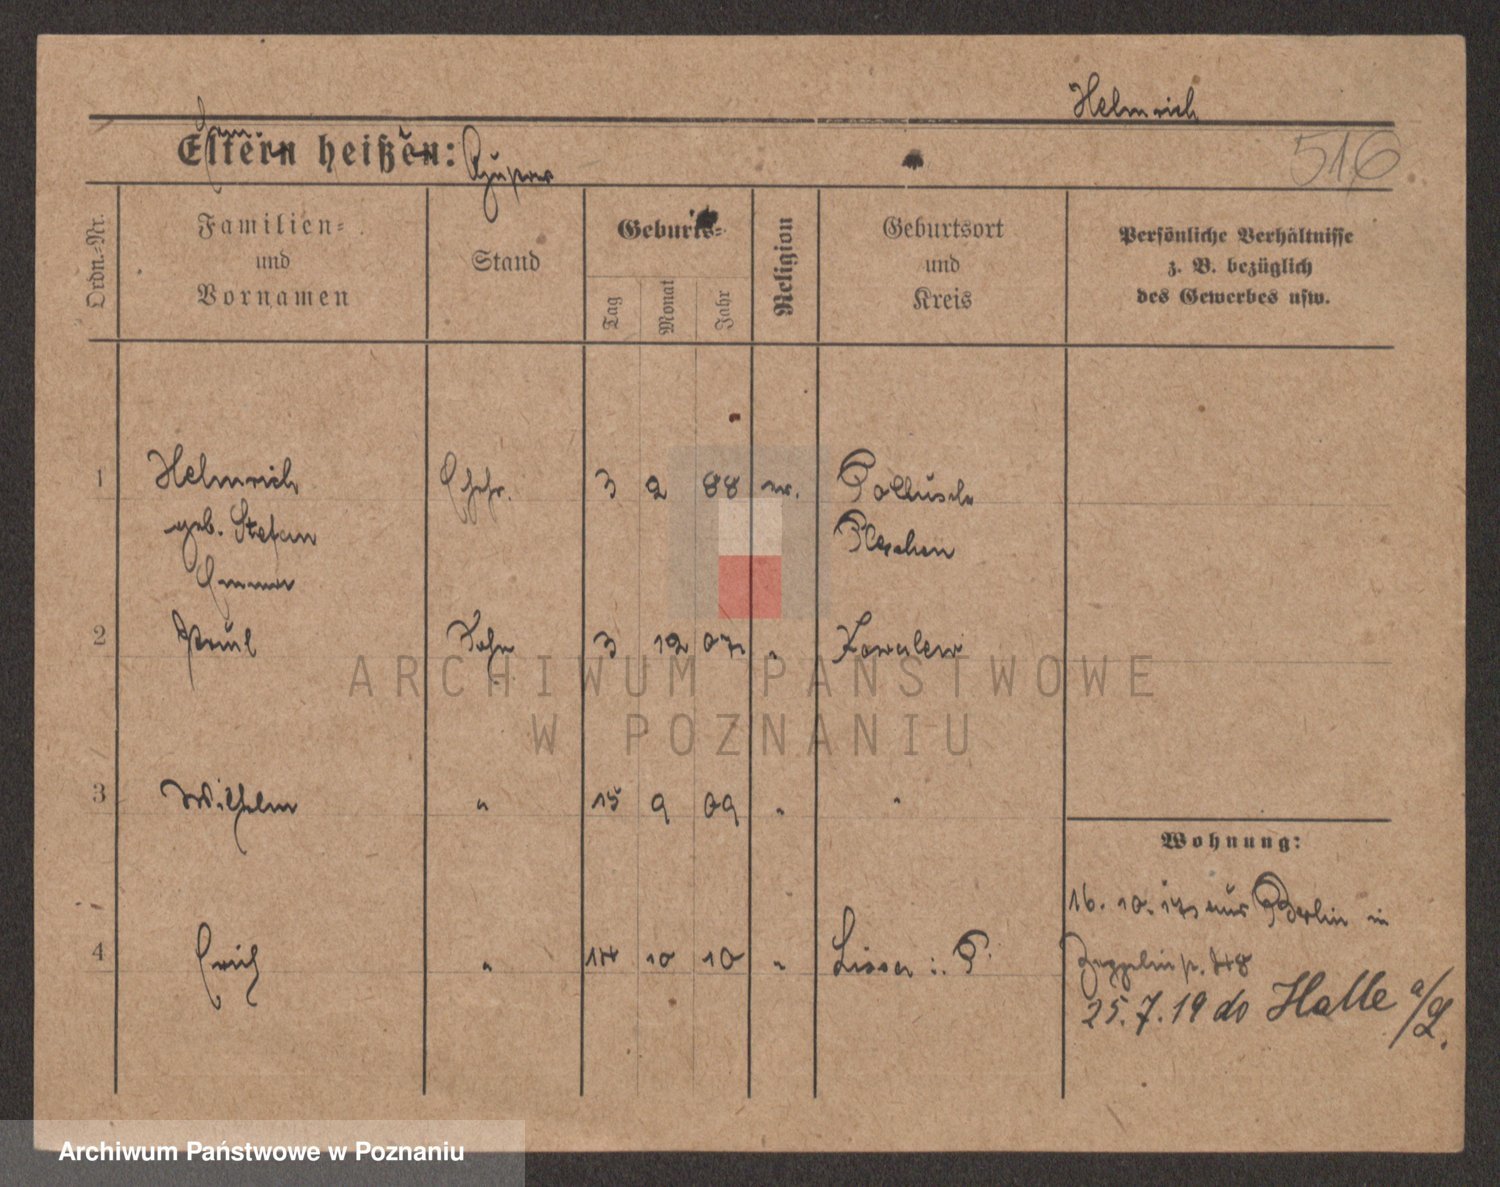 Helmrich
Eltern heißen:
516
Ordn.-Nr.
Familien-
und
Vornamen
Stand
Geburts-
Tag
Monat
Jahr
Religion
Geburtsort
und
Kreis
Persönliche Verhältnisse
z. B. bezüglich
des Gewerbes usw.
1 Helmrich Ehefr. 3 2 88 ev.
geb. Stefan Pleschen
Emma
2 Paul Sohn 3 12 07 " Kowalew
3 Wilhelm " 15 9 09 " "
Wohnung:
16. 10. 17 aus Berlin in
4 Erich " 14 10 10 " Lissa i. P.
Zeppelinstr. 48
25. 7. 19 do Halle a/S.
ARCHIWUM PAŃSTWOWE
W POZNANIU
Archiwum Państwowe w Poznaniu